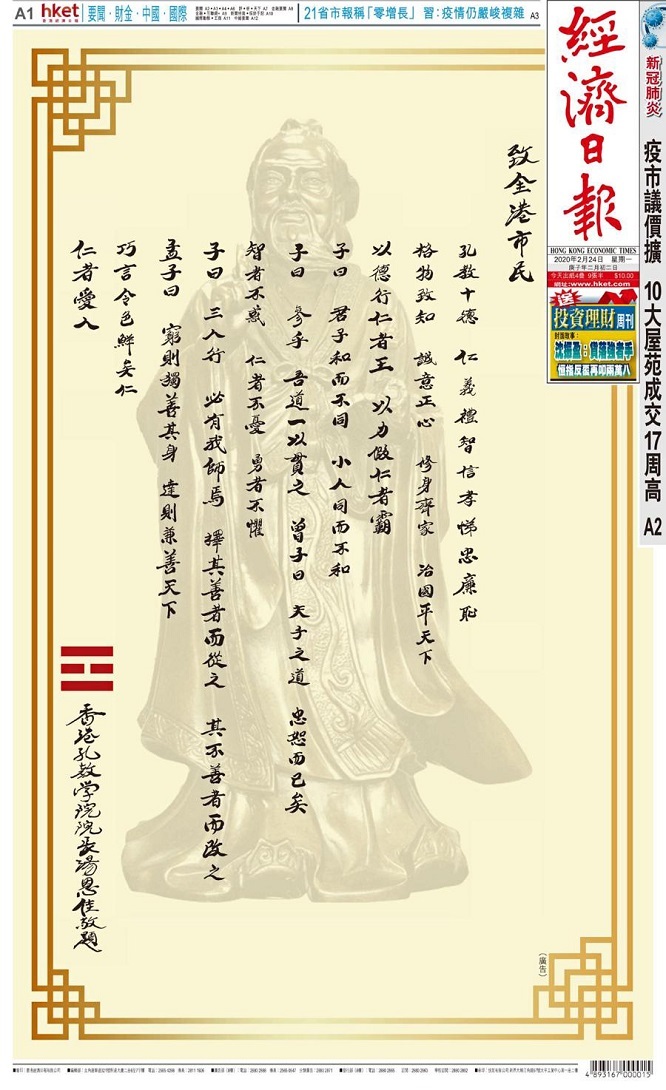 A1 hket 要聞·財金·中國·國際
21省市報稱「零增長」 習:疫情仍嚴峻複雜 A3
經濟日報
HONG KONG ECONOMIC TIMES
2020年2月24日 星期一
庚子年二月初二日
今天出紙4疊 9張半 $10.00
網址:www.hket.com
送
投資理財周刊
恒指反覆再叩兩萬八
新冠肺炎
疫市議價擴 10大屋苑成交17周高 A2
致全港市民
孔教十德 仁義禮智信孝悌忠廉恥
格物致知 誠意正心 修身齊家 治國平天下
以德行仁者王 以力假仁者霸
子曰 君子和而不同 小人同而不和
子曰 參乎 吾道一以貫之 曾子曰 夫子之道 忠恕而已矣
智者不惑 仁者不憂 勇者不懼
子曰 三人行 必有我師焉 擇其善者而從之 其不善者而改之
孟子曰 窮則獨善其身 達則兼善天下
巧言令色鮮矣仁
仁者愛人
香港孔教学院院長湯恩佳敬題
(廣告)
4 893167 000015